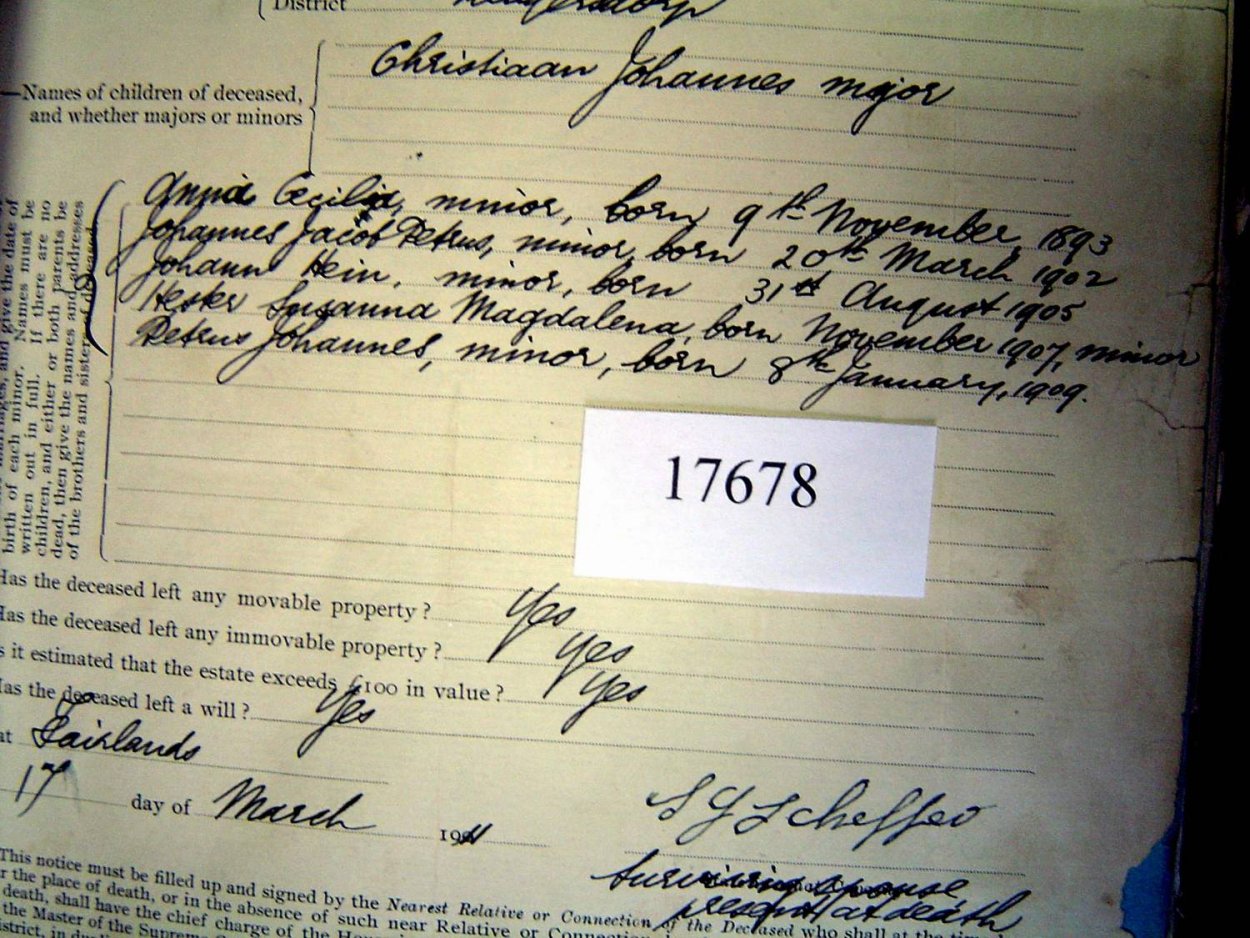 District Krugersdorp
Christiaan Johannes major
—Names of children of deceased,
and whether majors or minors
Anna Cecilia, minor, born 9th November, 1893
Johannes Jacob Petrus, minor, born 20th March 1902
Johann Hein, minor, born 31st August 1905
Hester Susanna Magdalena, born November 1907, minor
Petrus Johannes, minor, born 8th January, 1909.
and give the date of
birth of each minor. Names must be
written out in full. If there are no
children, and either or both parents be
dead, then give the names and addresses
of the brothers and sisters of deceased
17678
Has the deceased left any movable property? Yes
Has the deceased left any immovable property? Yes
is it estimated that the estate exceeds £100 in value? Yes
Has the deceased left a will? Yes
at Fairlands
17 day of March 1911
Surviving spouse
present at death
This notice must be filled up and signed by the Nearest Relative or Connection of the Deceased who shall at the
the place of death, or in the absence of such near Relative or
death, shall have the chief charge of the
the Master of the Supreme